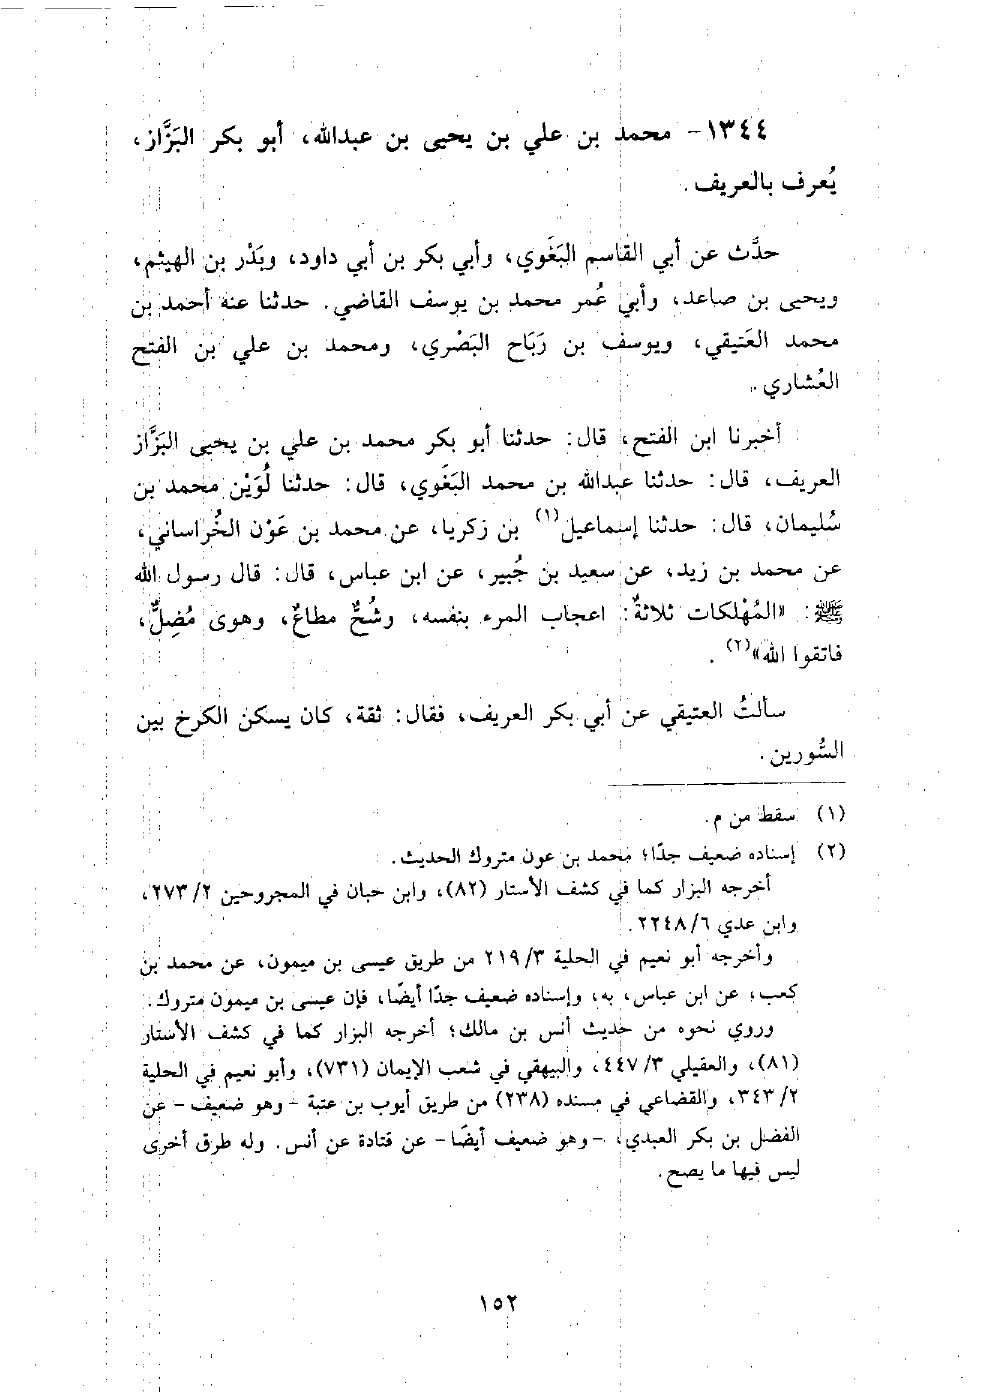 ١٣٤٤- محمد بن علي بن يحيى بن عبدالله، أبو بكر البَزَّاز،
يُعرف بالعريف.
حدَّث عن أبي القاسم البَغَوي، وأبي بكر بن أبي داود، وبَدْر بن الهيثم،
ويحيى بن صاعد، وأبي عُمر محمد بن يوسف القاضي. حدثنا عنه أحمد بن
محمد العَتيقي، ويوسف بن رَبَاح البَصْري، ومحمد بن علي بن الفتح
العُشاري.
أخبرنا ابن الفتح، قال: حدثنا أبو بكر محمد بن علي بن يحيى البَزَّاز
العريف، قال: حدثنا عبدالله بن محمد البَغَوي، قال: حدثنا لُوَيْن محمد بن
سُليمان، قال: حدثنا إسماعيل(١) بن زكريا، عن محمد بن عَوْن الخُراساني،
عن محمد بن زيد، عن سعيد بن جُبير، عن ابن عباس، قال: قال رسول الله
ﷺ: «المُهْلكات ثلاثةٌ: اعجاب المرء بنفسه، وشُحٌّ مطاعٌ، وهوى مُضِلٌّ،
فاتقوا الله»(٢).
سألتُ العتيقي عن أبي بكر العريف، فقال: ثقة، كان يسكن الكرخ بين
السُّورين.
(١) سقط من م.
(٢) إسناده ضعيف جدًا؛ محمد بن عون متروك الحديث.
أخرجه البزار كما في كشف الأستار (٨٢)، وابن حبان في المجروحين ٢/ ٢٧٣،
وابن عدي ٦/ ٢٢٤٨.
وأخرجه أبو نعيم في الحلية ٣/ ٢١٩ من طريق عيسى بن ميمون، عن محمد بن
كعب، عن ابن عباس، به، وإسناده ضعيف جدًا أيضًا، فإن عيسى بن ميمون متروك.
وروي نحوه من حديث أنس بن مالك؛ أخرجه البزار كما في كشف الأستار
(٨١)، والعقيلي ٣/ ٤٤٧، والبيهقي في شعب الإيمان (٧٣١)، وأبو نعيم في الحلية
٢/ ٣٤٣، والقضاعي في مسنده (٢٣٨) من طريق أيوب بن عتبة - وهو ضعيف - عن
الفضل بن بكر العبدي، - وهو ضعيف أيضًا - عن قتادة عن أنس. وله طرق أخرى
ليس فيها ما يصح.
١٥٢